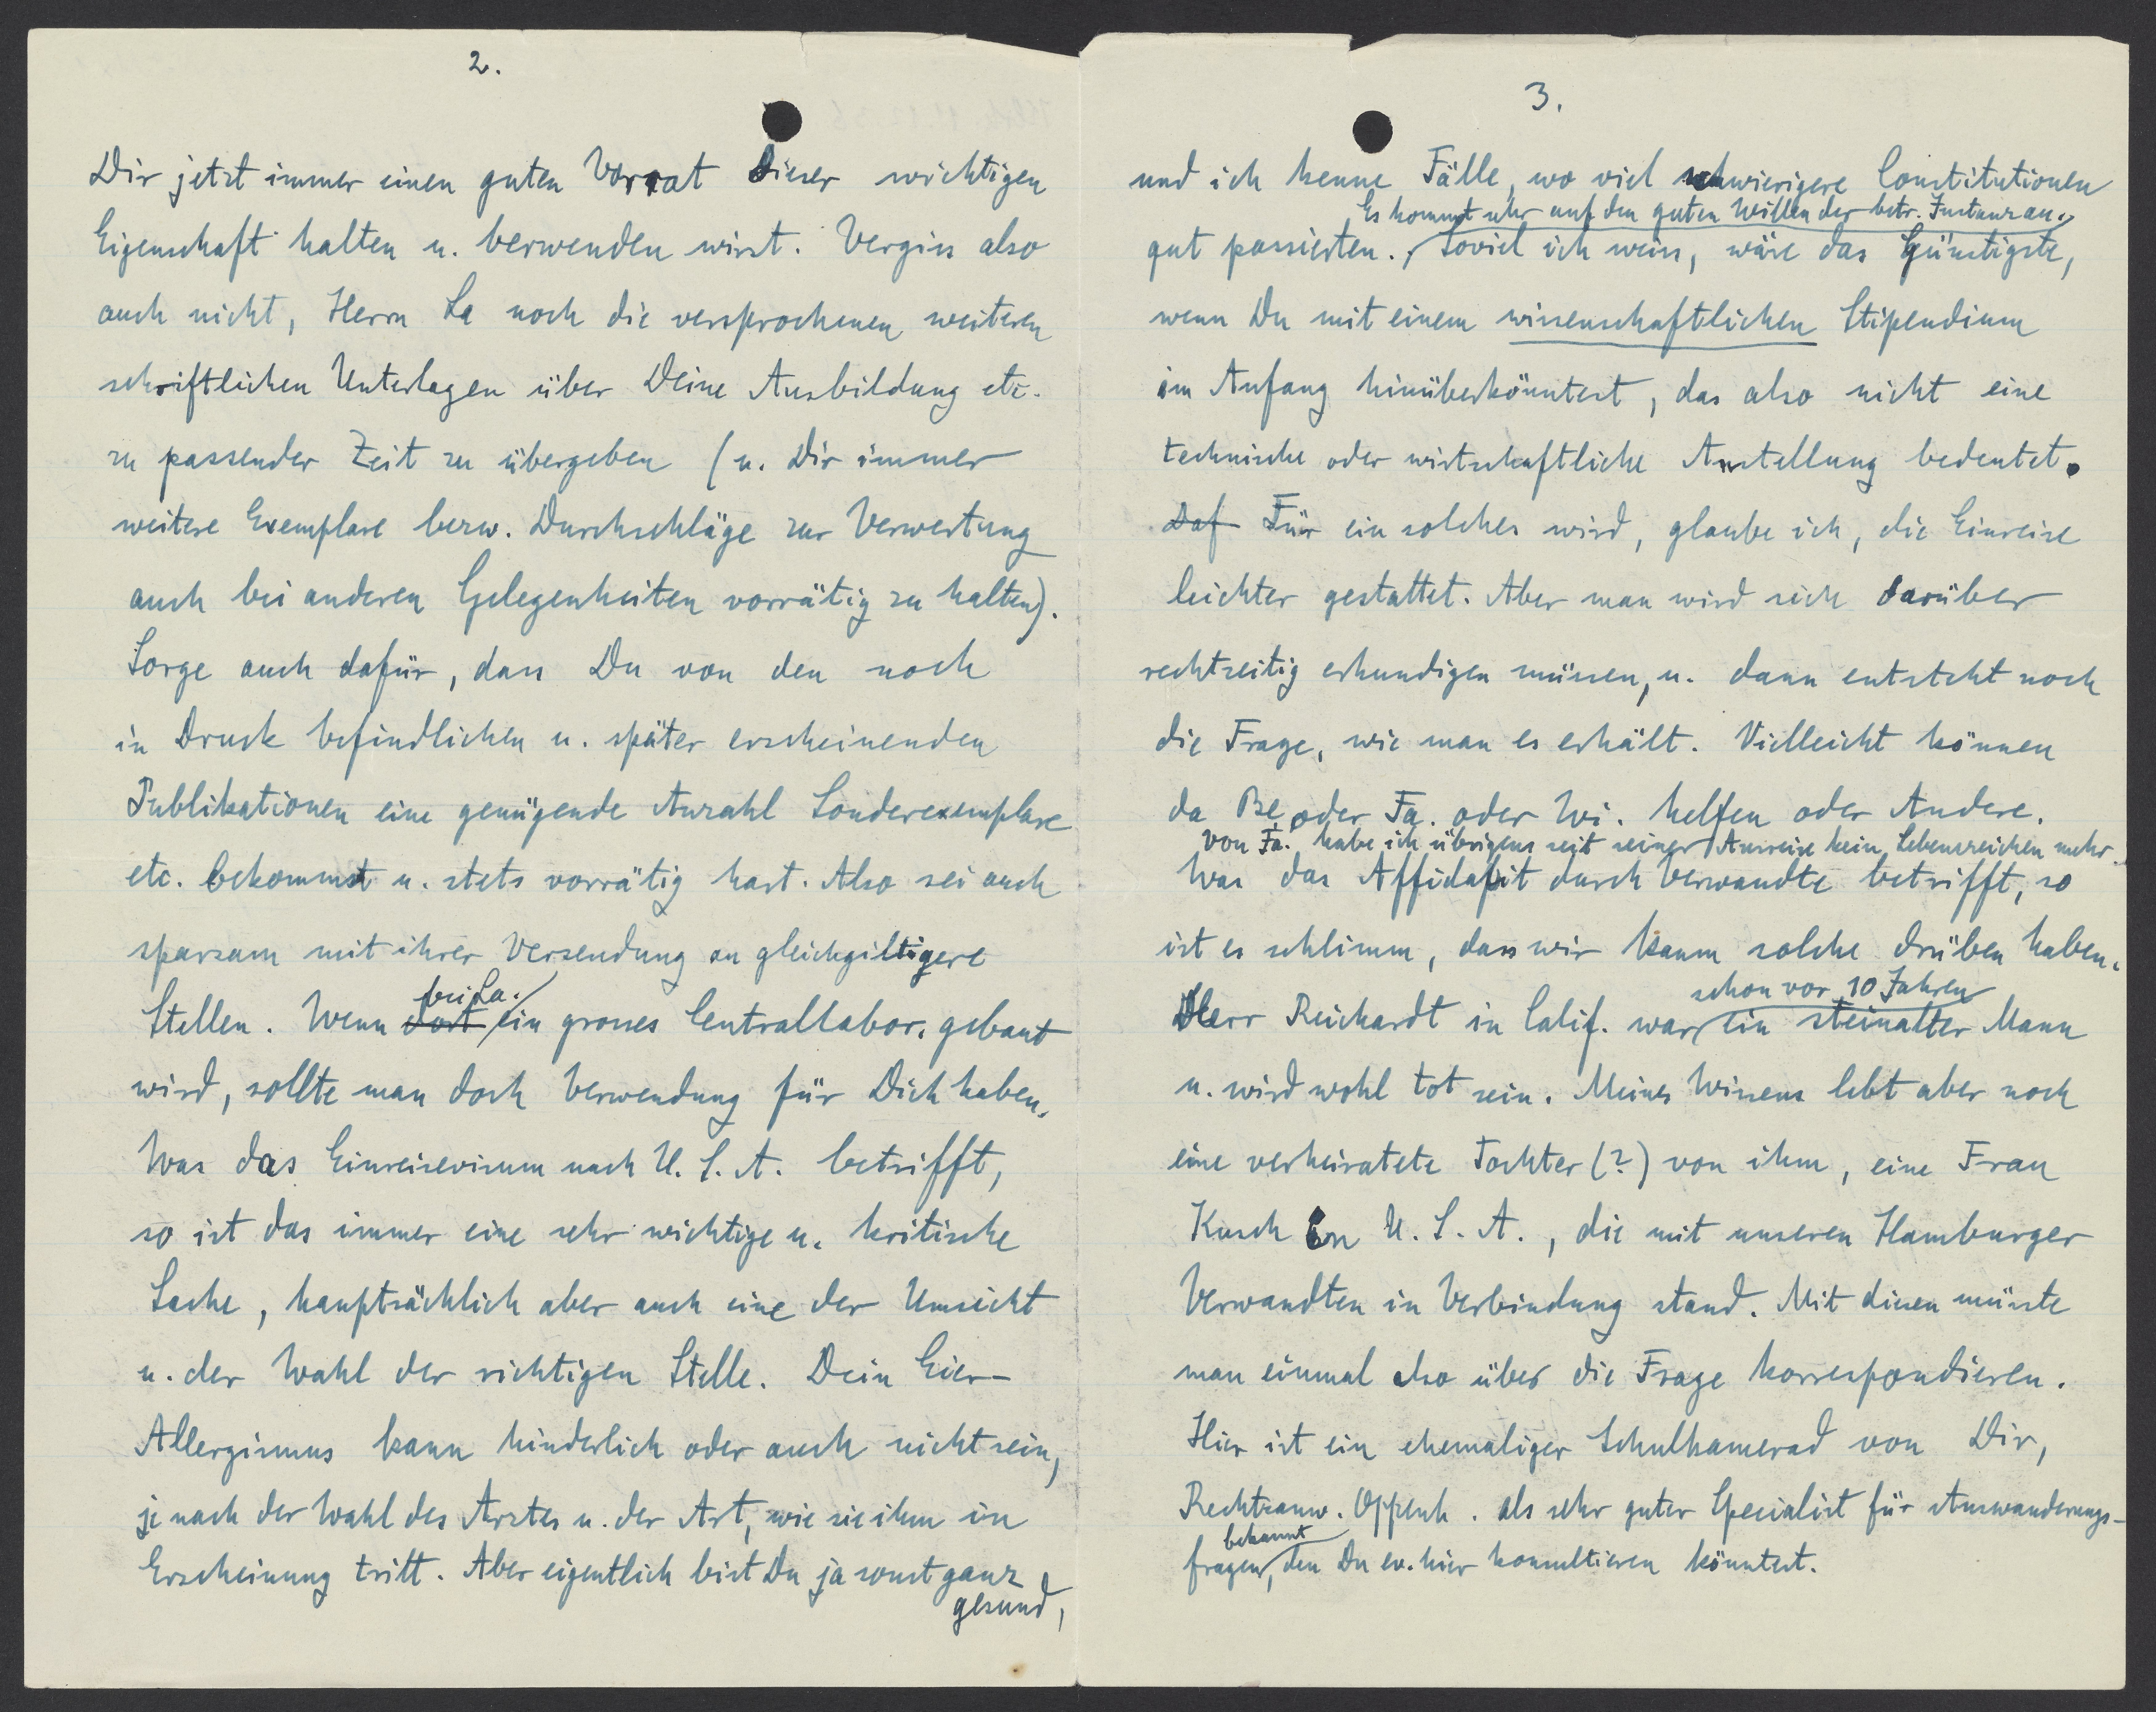 2.
Dir jetzt immer einen guten Vorrat dieser wichtigen
Eigenschaft halten u. verwenden wirst. Vergiss also
auch nicht, Herrn La noch die versprochenen weiteren
schriftlichen Unterlagen über Deine Ausbildung etc.
zu passender Zeit zu übergeben (u. Dir immer
weitere Exemplare bezw. Durchschläge zur Verwertung
auch bei anderen Gelegenheiten vorrätig zu halten).
Sorge auch dafür, dass Du von den noch
in Druck befindlichen u. später erscheinenden
Publikationen eine genügende Anzahl Sonderexemplare
etc. bekommst u. stets vorrätig hast. Also sei auch
sparsam mit ihrer Versendung an gleichgiltigere
bei La.
Stellen. Wenn dort ein grosses Centrallabor. gebaut
wird, sollte man doch Verwendung für Dich haben.
Was das Einreisevisum nach U. S. A. betrifft,
so ist das immer eine sehr wichtige u. kritische
Sache, hauptsächlich aber auch eine der Umsicht
u. der Wahl der richtigen Stelle. Dein Eier-
Allergismus kann hinderlich oder auch nicht sein,
je nach der Wahl des Arztes u. der Art, wie sie ihm in
Erscheinung tritt. Aber eigentlich bist Du ja sonst ganz
gesund,
3.
und ich kenne Fälle, wo viel schwierigere Constitutionen
Es kommt sehr auf den guten Willen der betr. Instanz an.
gut passierten. Soviel ich weiss, wäre das Günstigste,
wenn Du mit einem wissenschaftlichen Stipendium
im Anfang hinüberkönntest, das also nicht eine
technische oder wirtschaftliche Anstellung bedeutet.
Daf Für ein solches wird, glaube ich, die Einreise
leichter gestattet. Aber man wird sich darüber
rechtzeitig erkundigen müssen, u. dann entsteht noch
die Frage, wie man es erhält. Vielleicht können
da Be oder Fa. oder Wi. helfen oder Andere.
Von Fa. habe ich übrigens seit seiner Ausreise kein Lebenszeichen mehr.
Was das Affidavit durch Verwandte betrifft, so
ist es schlimm, dass wir kaum solche drüben haben.
schon vor 10 Jahren
Herr Reichardt in Calif. war ein steinalter Mann
u. wird wohl tot sein. Meines Wissens lebt aber noch
eine verheiratete Tochter (?) von ihm, eine Frau
Kusch in U. S. A., die mit unseren Hamburger
Verwandten in Verbindung stand. Mit diesen müsste
man einmal also über die Frage korrespondieren.
Hier ist ein ehemaliger Schulkamerad von Dir,
Rechtsanw. Oppenh. als sehr guter Specialist für Auswanderungs-
bekannt
fragen, den Du ev. hier konsultieren könntest.